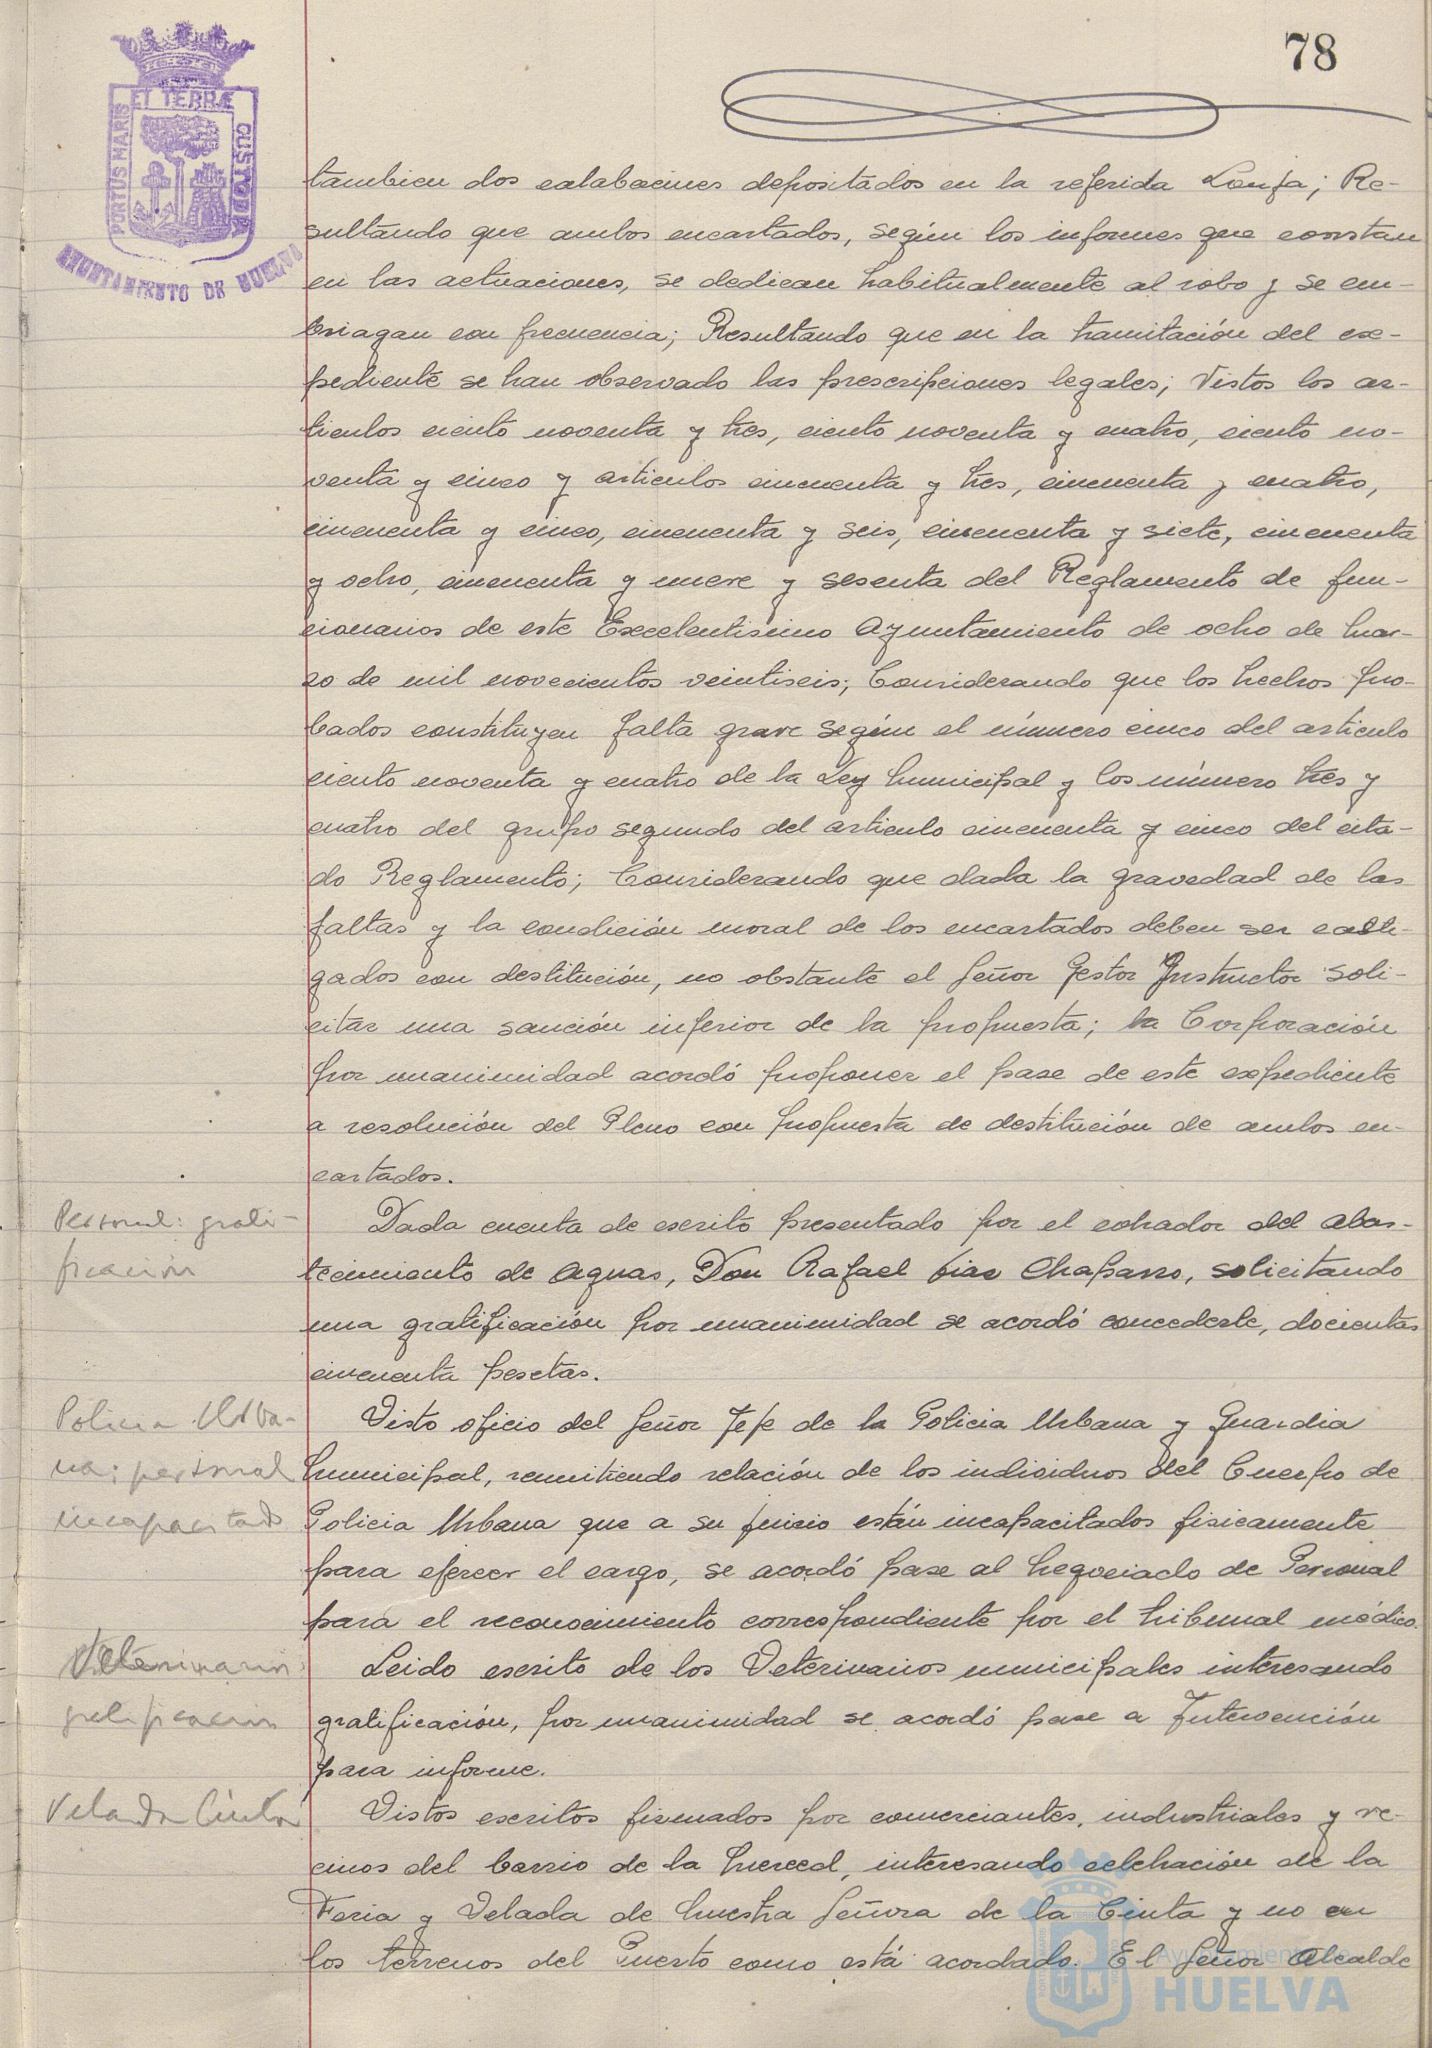 78
ET TERRÆ
PORTUS MARIS
CUSTODIA
AYUNTAMIENTO DE HUELVA
tambien dos calabacines depositados en la referida Lonja; Re-
sultando que ambos encartados, según los informes que constan
en las actuaciones, se dedican habitualmente al robo y se em-
briagan con frecuencia; Resultando que en la tramitación del ex-
pediente se han observado las prescripciones legales; Vistos los ar-
ticulos ciento noventa y tres, ciento noventa y cuatro, ciento no-
venta y cinco y articulos cincuenta y tres, cincuenta y cuatro,
cincuenta y cinco, cincuenta y seis, cincuenta y siete, cincuenta
y ocho, cincuenta y nueve y sesenta del Reglamento de fun-
cionarios de este Excelentisimo Ayuntamiento de ocho de Mar-
zo de mil novecientos veintiseis; Considerando que los hechos pro-
bados constituyen falta grave según el número cinco del articulo
ciento noventa y cuatro de la Ley Municipal y los número tres y
cuatro del grupo segundo del articulo cincuenta y cinco del cita-
do Reglamento; Considerando que dada la gravedad de las
faltas y la condición moral de los encartados deben ser casti-
gados con destitución, no obstante el Señor Gestor Instructor soli-
citar una sanción inferior de la propuesta; la Corporación
por unanimidad acordó proponer el pase de este expediente
a resolución del Pleno con propuesta de destitución de ambos en-
cartados.
Personal: grati-
ficación
Dada cuenta de escrito presentado por el cobrador del abas-
tecimiento de aguas, Don Rafael Diaz Chaparro, solicitando
una gratificación por unanimidad se acordó concederle, docientas
cincuenta pesetas.
Policia Urba-
na: personal
incapacitado
Visto oficio del Señor Jefe de la Policia Urbana y Guardia
Municipal, remitiendo relación de los individuos del Cuerpo de
Policia Urbana que a su juicio están incapacitados fisicamente
para ejercer el cargo, se acordó pase al Negociado de Personal
para el reconocimiento correspondiente por el tribunal médico.
Veterinarios
gratificacion
Leido escrito de los Veterinarios municipales interesando
gratificación, por unanimidad se acordó pase a Intervención
para informe.
Velada Cinta
Vistos escritos firmados por comerciantes, industriales y ve-
cinos del barrio de la Merced, interesando celebración de la
Feria y Velada de Nuestra Señora de la Cinta y no en
los terrenos del Puerto como está acordado. El Señor Alcalde
Ayuntamiento de
HUELVA